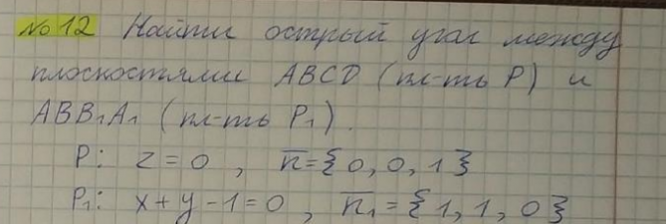 №12 Найти острый угол между
плоскостями ABCD (пл-ть P) и
ABB₁A₁ (пл-ть P₁).
P: z=0, n̅={0,0,1}
P₁: x+y-1=0, n̅₁={1,1,0}